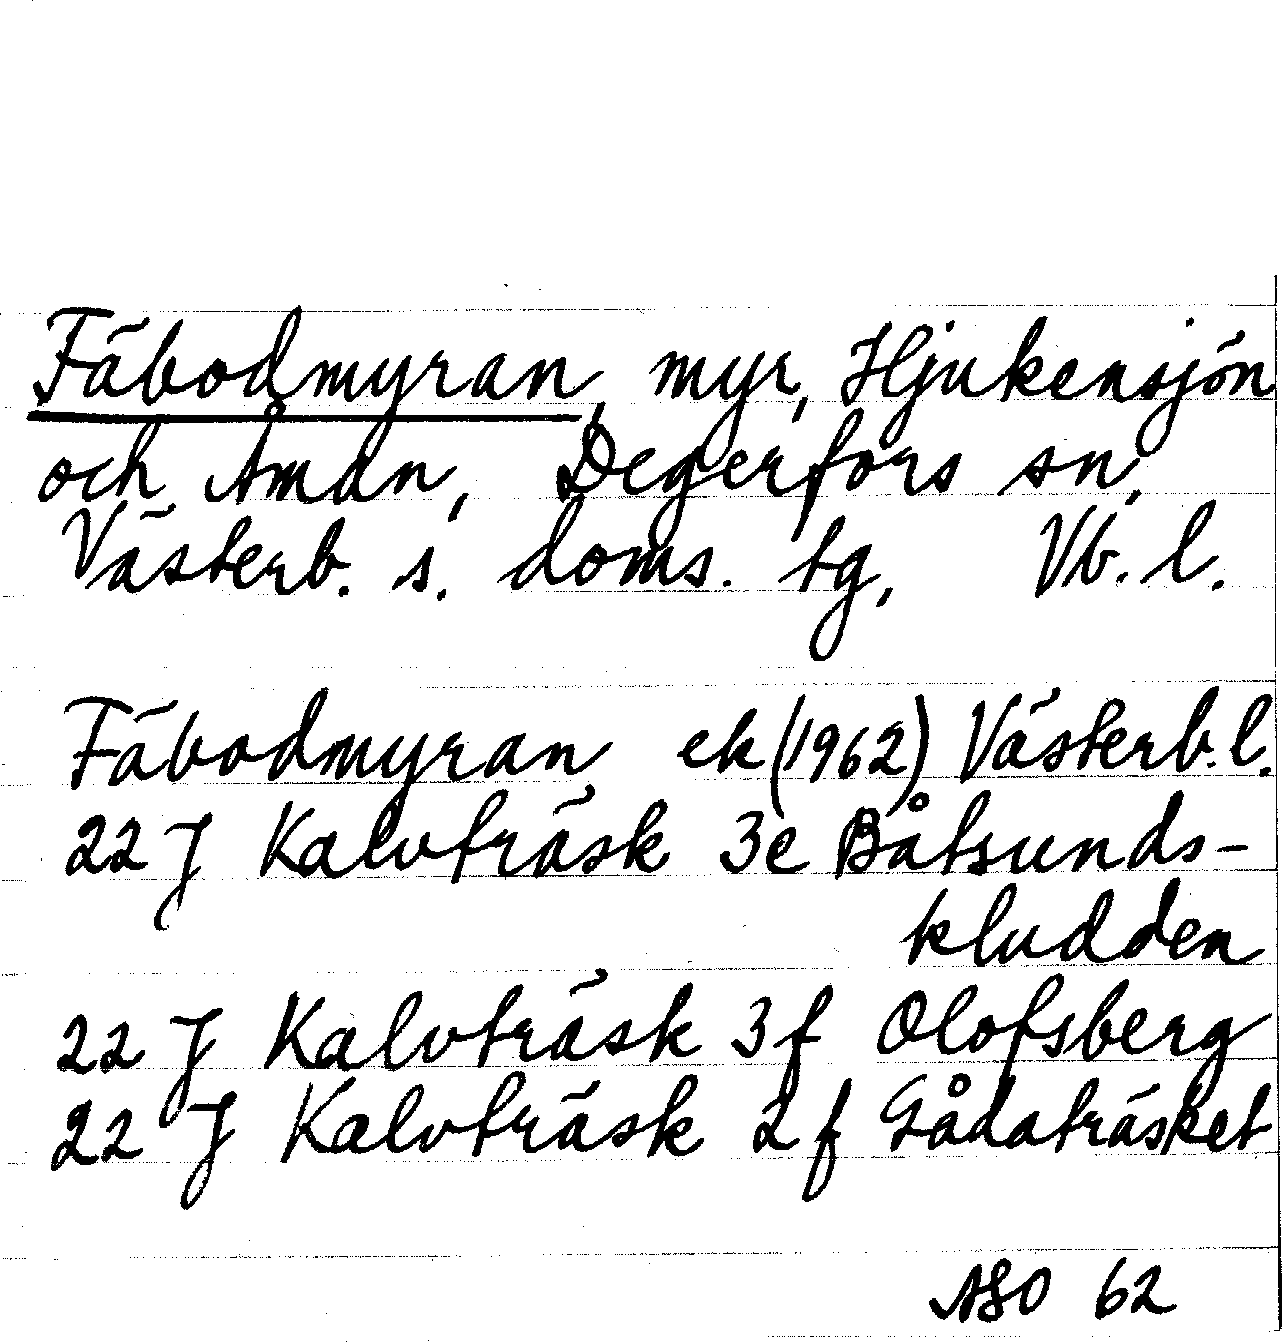 Fäbodmyran, myr, Hjukensjön
och Åmån, Degerfors sn,
Västerb. s. doms. tg, Vb. l.
Fäbodmyran ek (1962) Västerb. l.
22 J Kalvträsk 3e Båtsunds-
kludden
22 J Kalvträsk 3f Olofsberg
22 J Kalvträsk 2f Gådaträsket
62